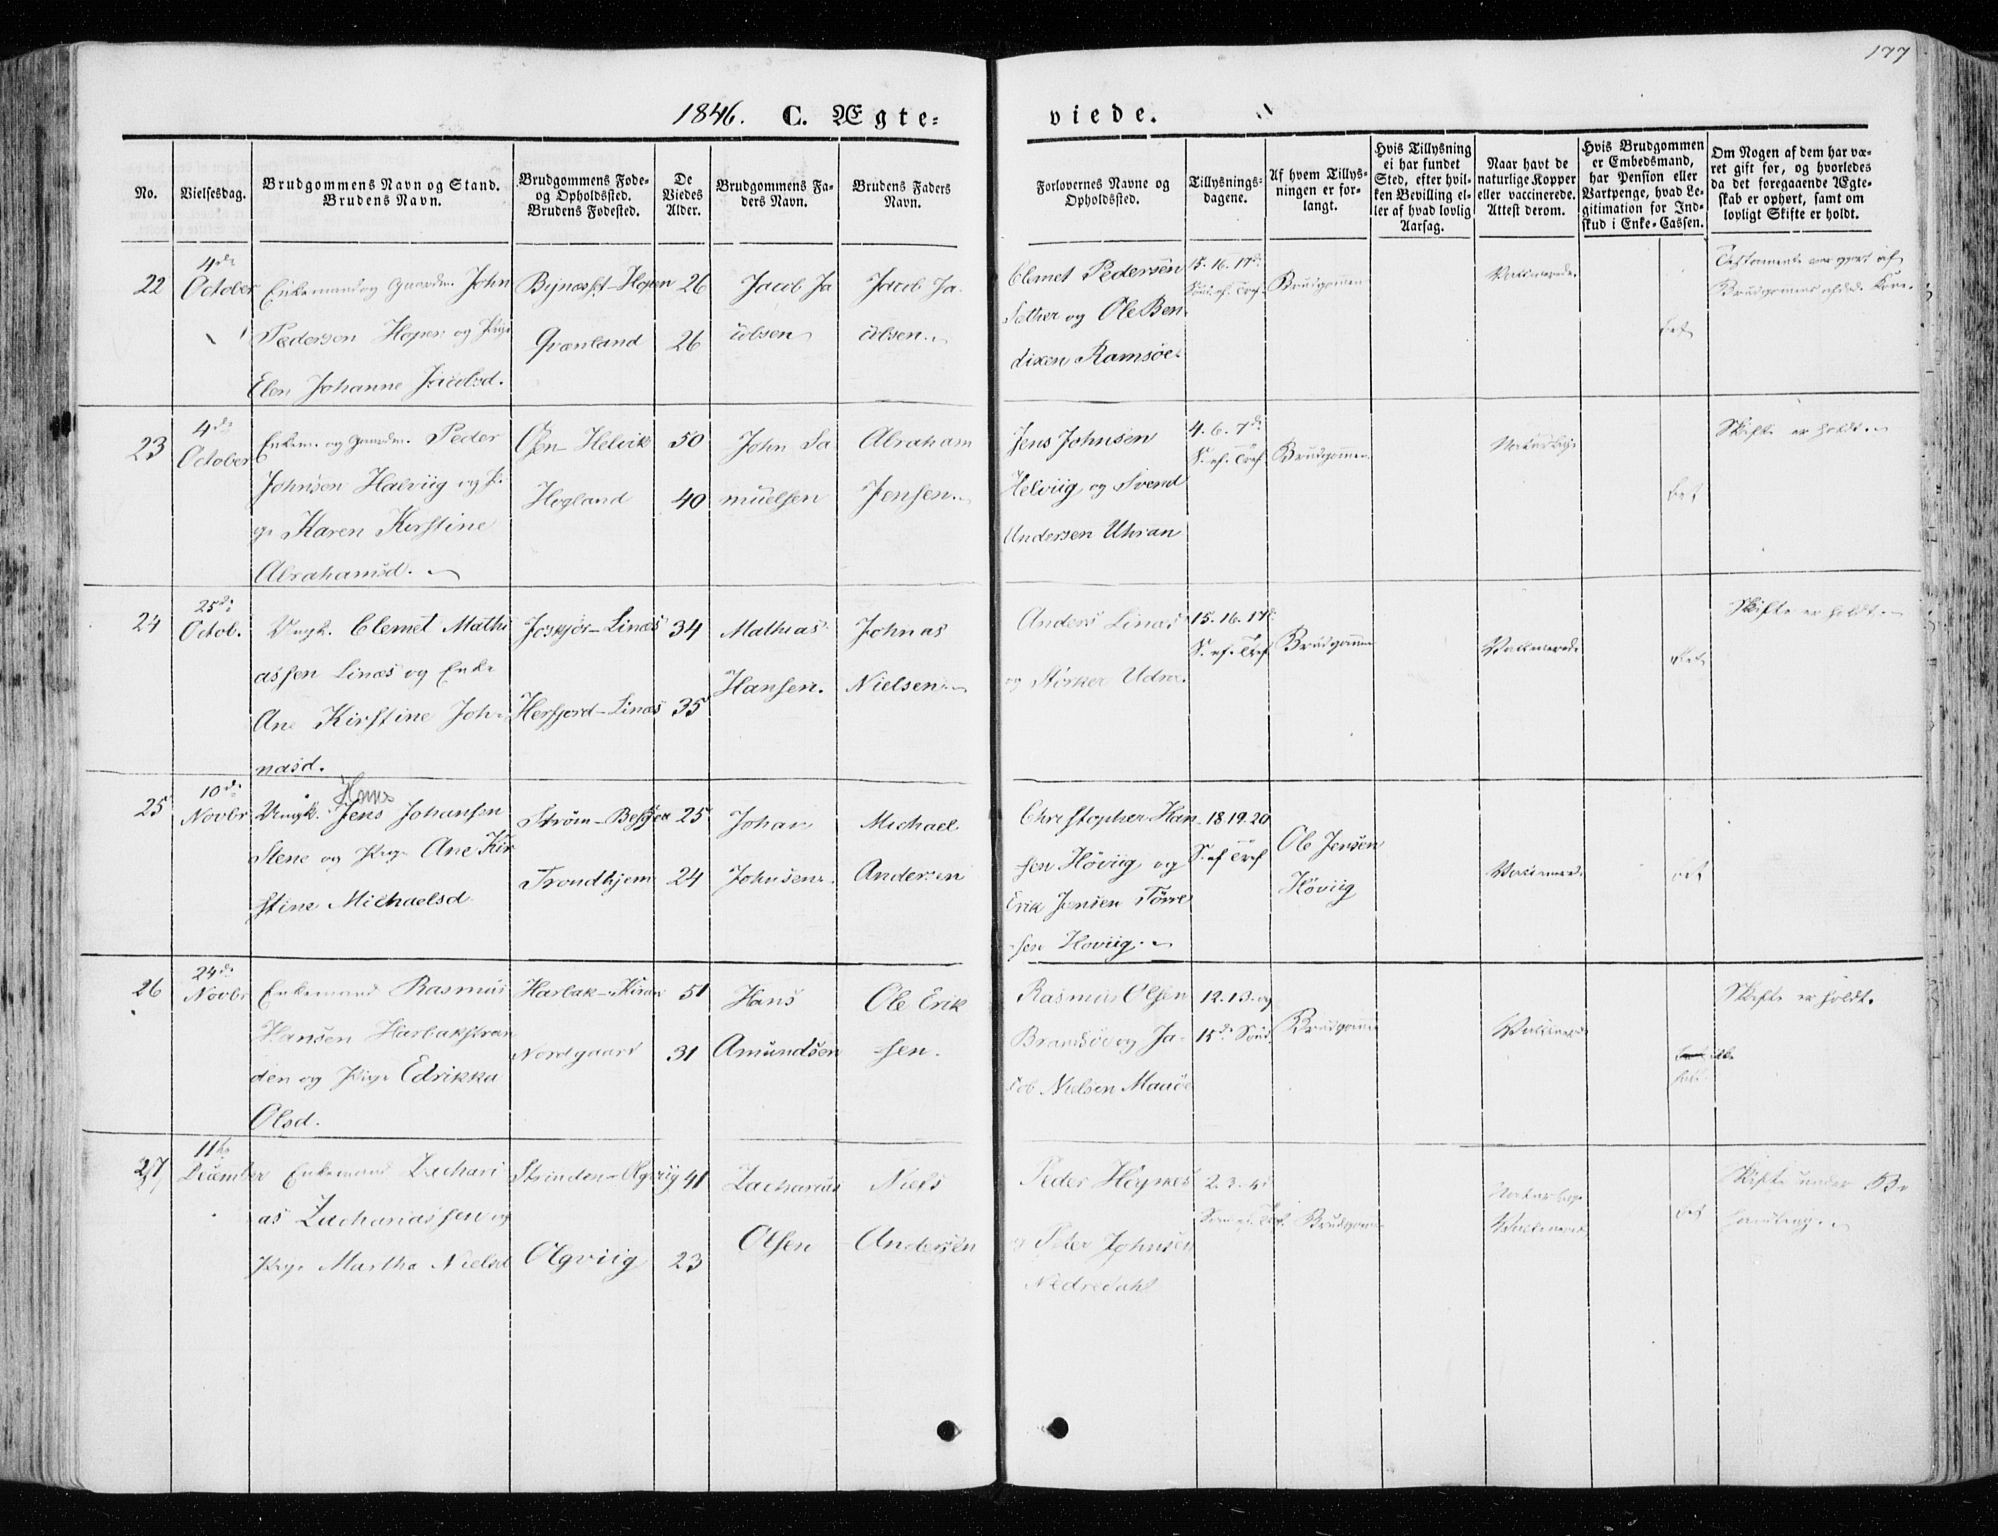 177
1846. C. Ægte-
viede.
No.
Vielsesdag.
Brudgommens Navn og Stand.
Brudens Navn.
Brudgommens Føde-
og Opholdssted.
Brudens Fødested.
De
Viedes
Alder.
Brudgommens Fa-
ders Navn.
Brudens Faders
Navn.
Forlovernes Navne og
Opholdssted.
Tillysnings-
dagene.
Af hvem Tillys-
ningen er for-
langt.
Hvis Tillysning
ei har fundet
Sted, efter hvil-
ken Bevilling el-
ler af hvad lovlig
Aarsag.
Naar havt de
naturlige Kopper
eller vaccinerede.
Attest derom.
Hvis Brudgommen
er Embedsmand,
har Pension eller
Vartpenge, hvad Le-
gitimation for Ind-
skud i Enke-Cassen.
Om Nogen af dem har væ-
ret gift før, og hvorledes
da det foregaaende Ægte-
skab er ophørt, samt om
lovligt Skifte er holdt.
22
4de
October
Enkemand og Gaardm. John
Pedersen Hopen og Pige
Elen Johanne Jacobsd.
Hopen
Qvænland
26
26
Jacob Ja
cobsen
Jacob Ja-
cobsen
Clemet Pedersen
Sæther og Ole Ben
dixen Ramsøe
15. 16. 17de
S. ef. Tref.
Brudgommen
Vaccinerede
23
4de
October
Enkem. og Gaardm. Peder
Johnsen Halviig og Pi
ge Karen Kirstine
Abrahamsd.
Osen - Helvik
Hogland
50
40
John Sa
muelsen
Abraham
Jensen
Jens Johnsen
Helviig og Svend
Andersen Uhran
4. 6. 7de
S. ef. Tref
Brudgommen
Skifte er holdt
24
25de
Octob.
Ungk. Clemet Mathi
assen Linæs og Enke
Ane Kirstine Joh-
nasd.
Linæs
Herfjord - Linæs
34
35
Mathias
Hansen.
Johnas
Nielsen
Anders Linæs
og Størker Udra.
15. 16. 17de
S. ef. Tref
Brudgommen
Vaccinerede
Skifte er holdt
25
10de
Novbr
Hans
Ungk. Jens Johansen
Stene og Pige Ane Kir
stine Michaelsd
Strøm - Bessger
Trondhjem
25
24
Johan
Johnsen
Michael
Andersen
Christopher Han
sen Høviig og
Erik Jensen Tørre
sen Høviig
18 19. 20
S. ef Tref
Ole Jensen
Høviig
Vaccinerede
26
24de
Novbr
Enkemand Rasmus
Hansen Harbakstran
den og Pige Edrikka
Olsd.
Harbak - Kiran
Nordgaard
51
31
Hans
Amundsen
Ole Erik
sen.
Rasmus Olsen
Brandsøe og Ja-
cob Nielsen Mauøe
12. 13. og
15de Sønd.
Brudgommen
Vaccinerede
Skifte er holdt.
27
11te
December
Enkemand Zachari
as Zachariassen og
Pige Martha Nielsd
Strinden - Olgviig
Olgviig
41
23
Zacharias
Olsen
Niels
Andersen
Peder Høynes
og Peter Johnsen
Nedredahl
2. 3. 4de
Brudgommen
Vaccinerede
Skifte under Be
handling